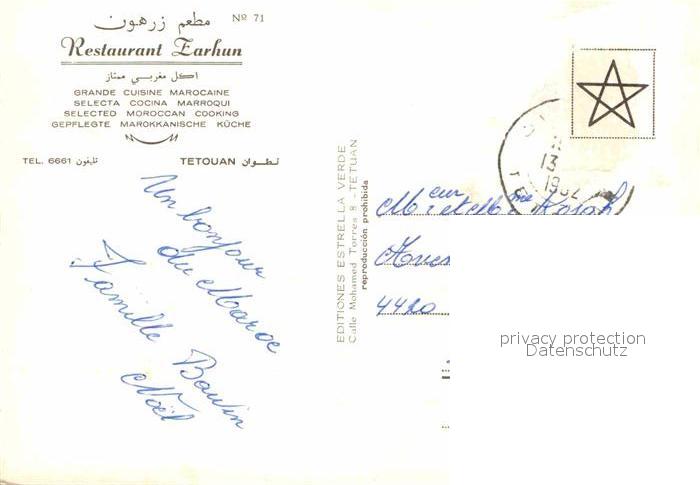 مطعم زرهون
Nº 71
Restaurant Zarhun
اكل مغربي ممتاز
GRANDE CUISINE MAROCAINE
SELECTA COCINA MARROQUI
SELECTED MOROCCAN COOKING
GEPFLEGTE MAROKKANISCHE KÜCHE
TEL. 6661 تليفون
TETOUAN تطوان
Un bonjour
du Maroc
Famille Baulin
Noël
EDITIONES ESTRELLA VERDE
Calle Mohamed Torres 8 - TETUAN
reproducción prohibida
13
Meur et Mme
4420
privacy protection
Datenschutz